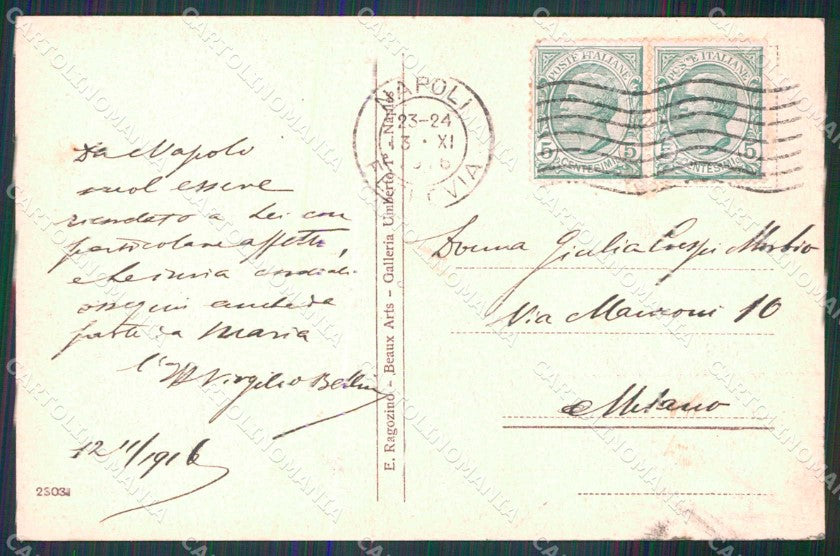 Da Napoli
vuol essere
ricordato a Lei con
particolare affetto,
e Le invia cordiali
ossequi anche da
parte di Maria
Virgilio
12 11/1916
23031
E. Ragozino - Beaux Arts - Galleria Umberto Iº - Naples
NAPOLI
23-24
XI
FERROVIA
POSTE ITALIANE
5 CENTESIMI 5
POSTE ITALIANE
5 CENTESIMI 5
Donna Giulia Crespi Morbio
Via Manzoni 10
Milano
CARTOLINOMANIA